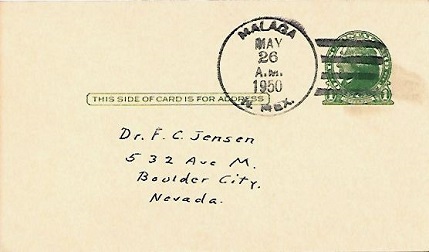 MALAGA
MAY
26
A.M.
1950
N. MEX.
THIS SIDE OF CARD IS FOR ADDRESS
Dr. F. C. Jensen
532 Ave M.
Boulder City.
Nevada.